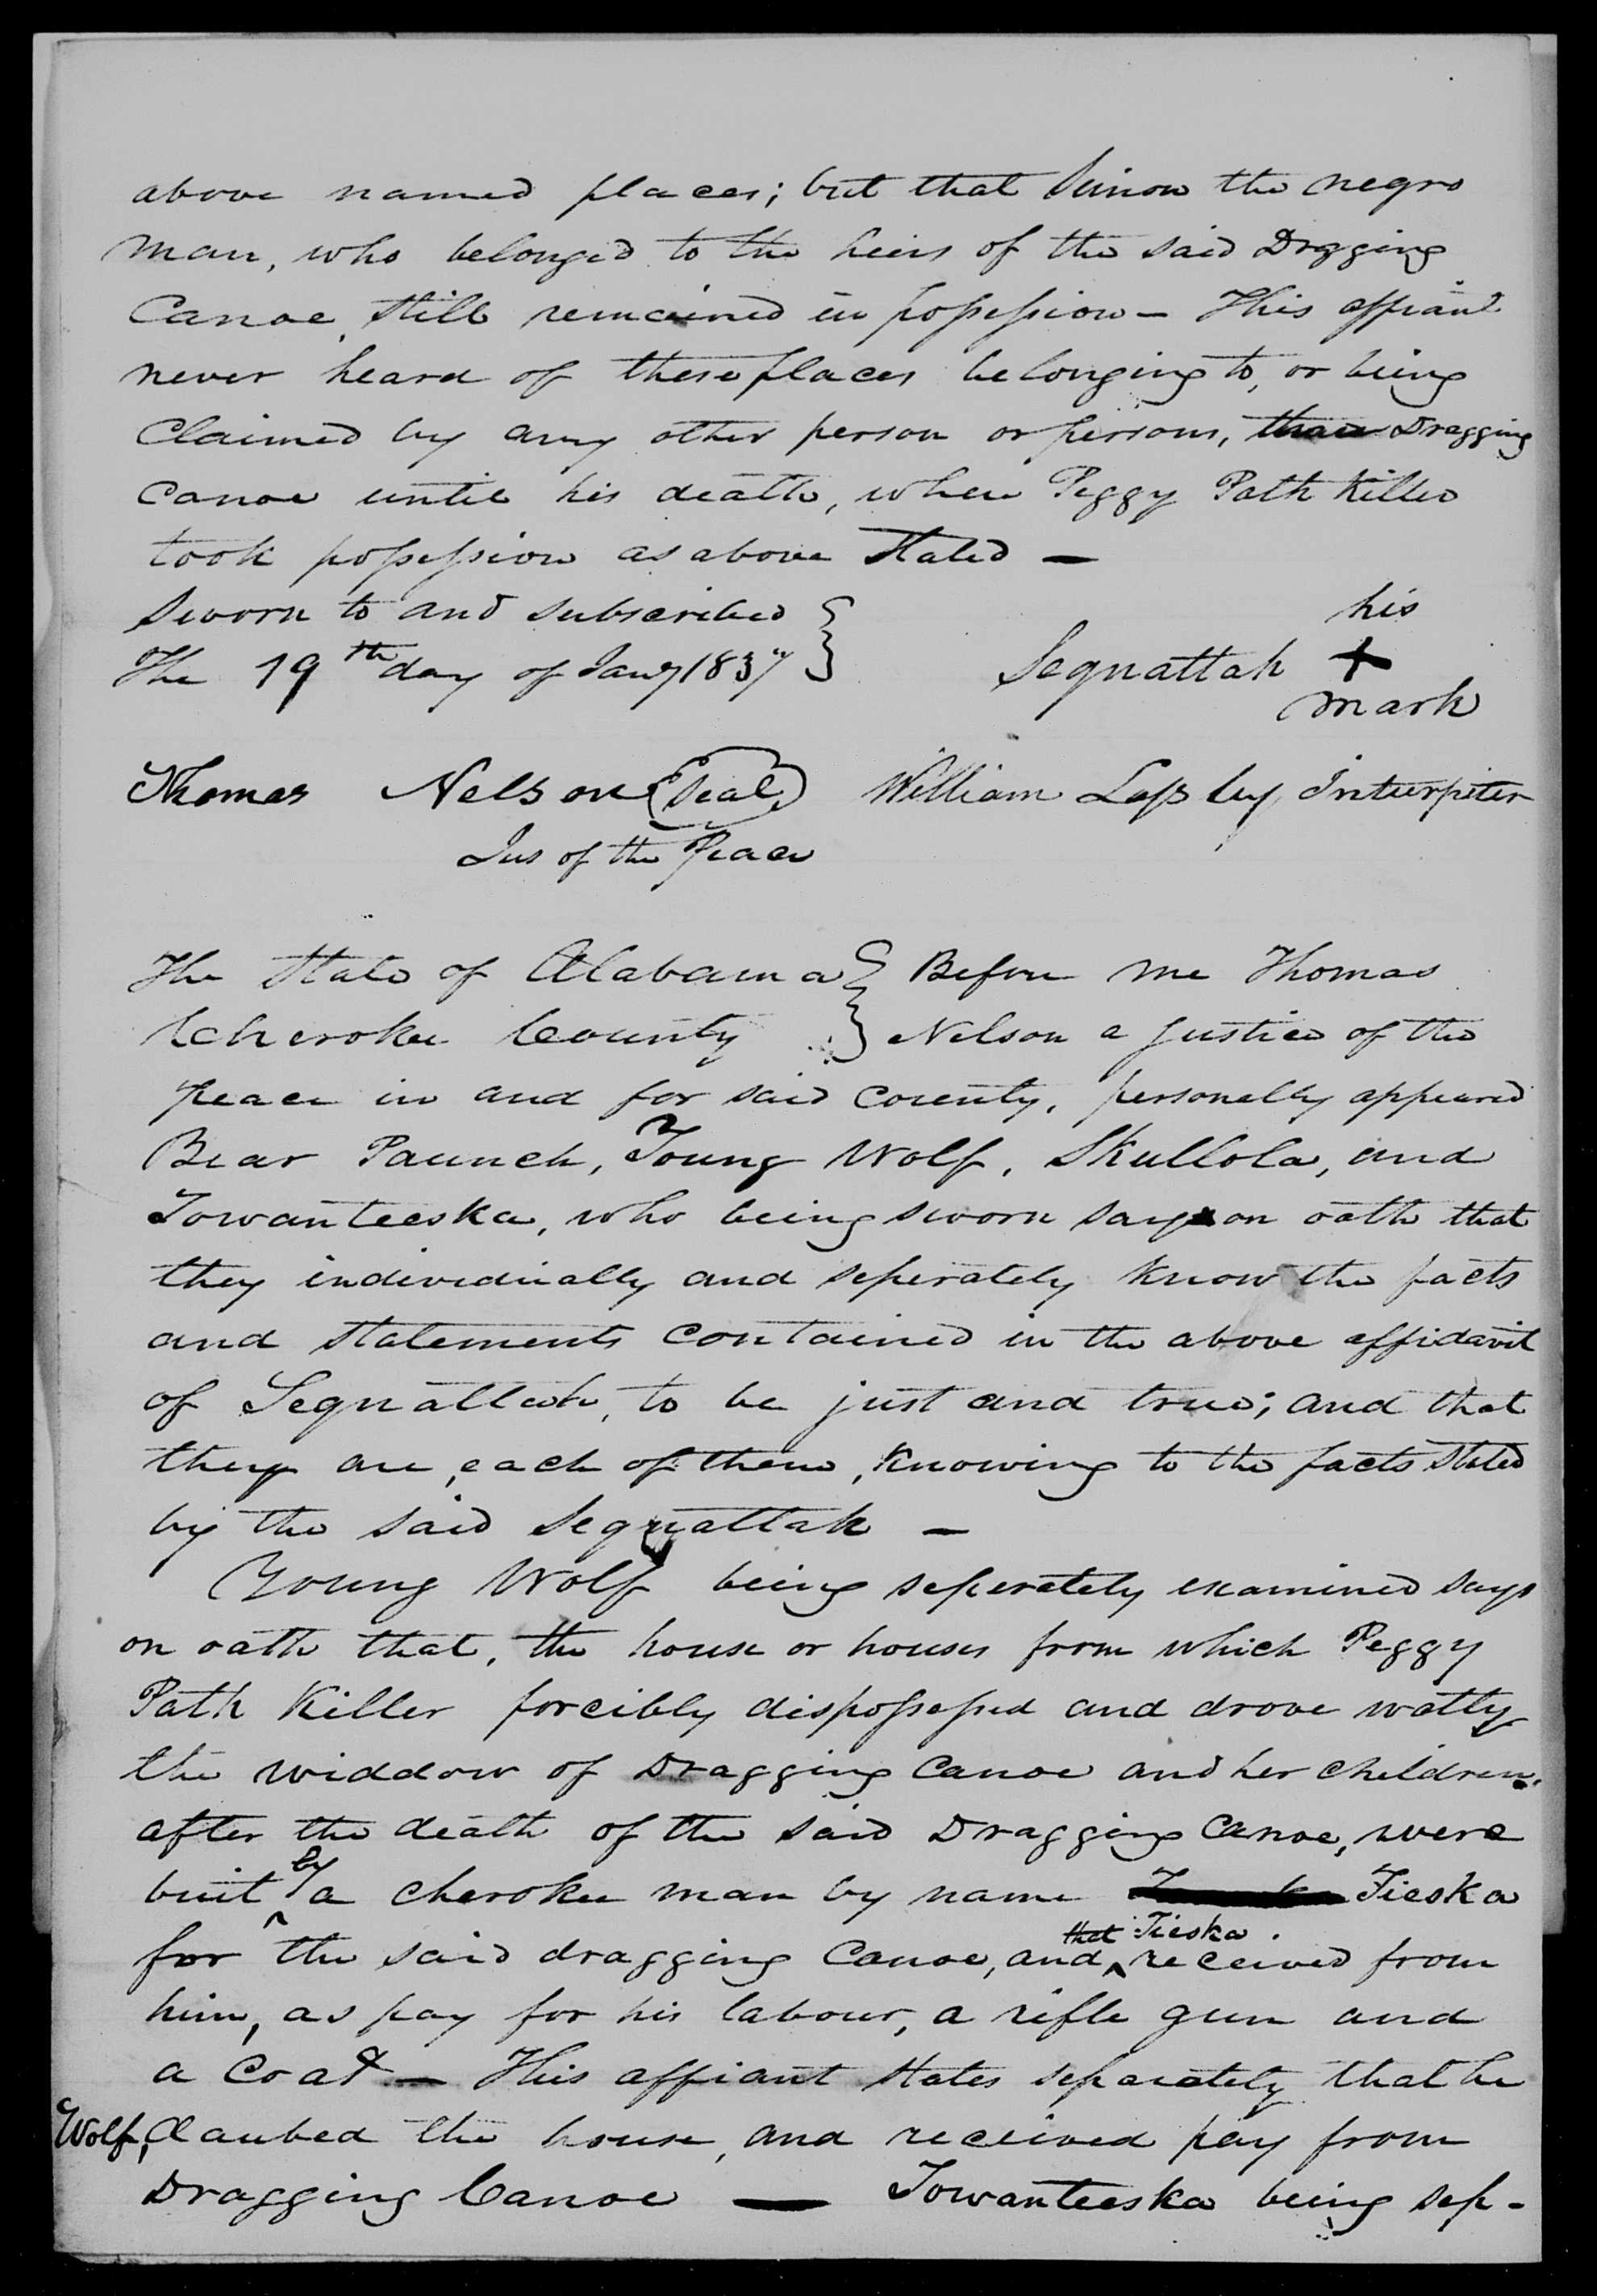 above named places; but that Simon the negro
man, who belonged to the heirs of the said Dragging
Canoe, still remained in possession – This affiant
never heard of these places belonging to, or being
Claimed by any other person or persons, than Dragging
Canoe until his death, when Peggy Path Killer
took possession as above stated —
Sworn to and subscribed
The 19th day of Jany 1837
his
Sequattah +
mark
Thomas Nelson (Seal)
Jus of the Peace
William Lassley Interpiter
The State of Alabama } Before me Thomas
Cherokee County } Nelson a justice of the
peace in and for said County, personally appeared
Bear Paunch, Young Wolf, Skullola, and
Towanteeska, who being sworn say on oath that
they individually and seperately know the facts
and statements contained in the above affidavit
of Sequattah, to be just and true; and that
they are, each of them, knowing to the facts stated
by the said Sequattah —
Young Wolf being seperately examined says
on oath that, the house or houses from which Peggy
Path Killer forcibly dispossessed and drove watty
the widdow of Dragging Canoe and her children,
after the death of the said Dragging Canoe, were
built by a cherokee man by name Tieska
for the said dragging Canoe, and that Tieska received from
him, as pay for his labour, a rifle gun and
a Coat — This affiant states separately that he
Wolf, daubed the house, and received pay from
Dragging Canoe — Towanteeska being sep-